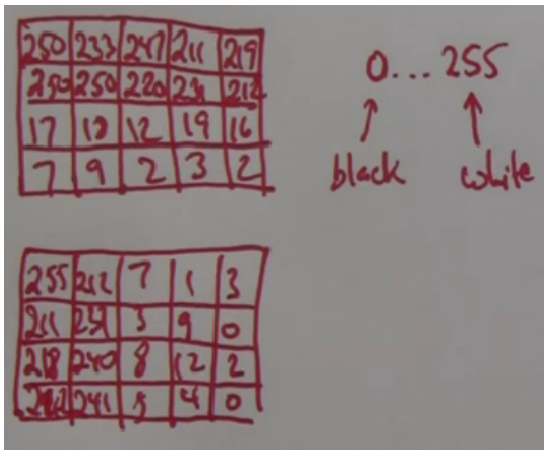 250 233 247 211 219
250 250 220 231 212
17 18 12 19 16
7 9 2 3 2
0... 255
black white
255 212 7 1 3
211 3 9 0
218 240 8 12 2
241 4 0